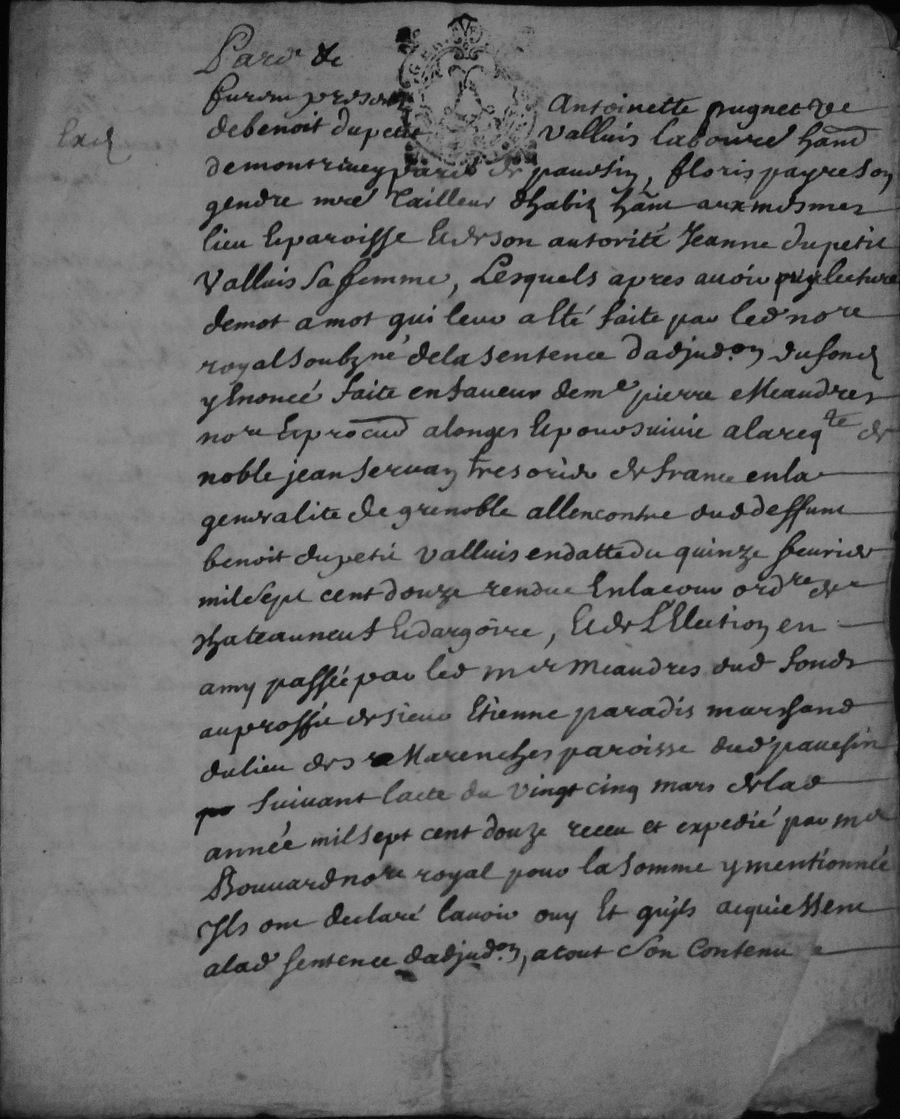 Pard
furent presents Antoinette pugnet vve
de benoit du petit Valluis laboure hant
de montriney par de pavesin, floris payre son
gendre mre Tailleur dhabis hant aux mesmes
lieu & paroisse & de son autorité Jeanne du petit
Valluis sa femme, Lesquels apres avoir ouy lecture
de mot a mot qui leur a esté faite par led nore
royal soubzné, de la sentence dadjud.on du fond
y Enoncé faite en faveur de me pierre Meandres
nore & procur a longes & poursuivie a la reqte de
noble jean Servan tresorier de france en la
generalite de grenoble allencontre dud deffunt
benoit du petit valluis en datte du quinze fevrier
mil Sept cent douze rendue En la cour ordre de
chateauneuf & dargoire, & de L'Election en
amy passée par led mer Meandres dud fonds
au proffit de sieur Etienne paradis marchand
du lieu des Marenches paroisse dud pavesin
suivant lacte du vingt cinq mars de lad
année mil sept cent douze receu et expedié par me
Bouvard nore royal pour la somme y mentionnée
Ils ont declaré lavoir ouy Et quils acquiessent
a lad sentence dadjud.on, a tout son Contenu